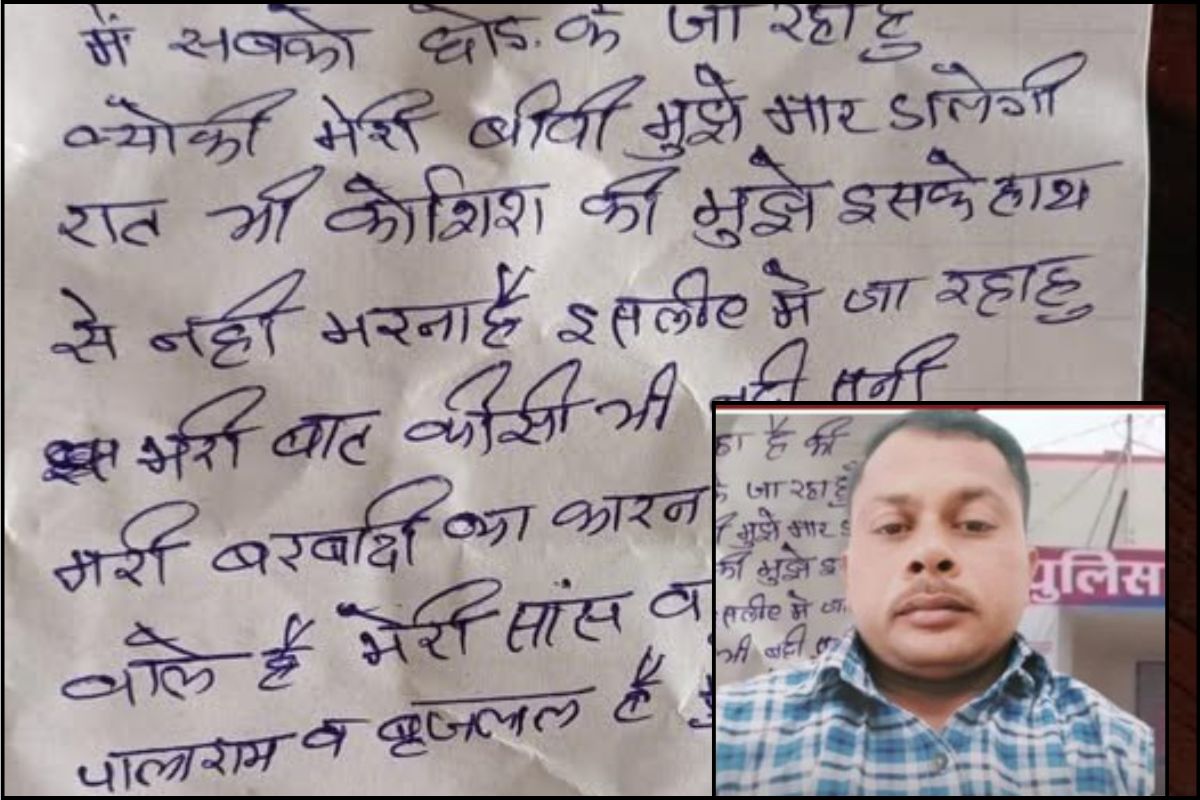 में सबको छोड. के जा रहा हु
क्योकी मेरी बीवी मुझे मार डालेगी
रात भी कोशिश की मुझे इसके हाथ
से नही मरना है इसलीए मे जा रहा हु
मेरी बात कीसी भी नही सुनी
मेरी बरबादी का कारन
वाले है मेरी सांस व
पालाराम व बृजलाल है
हा है की
के जा रहा हु
मुझे मार
की मुझे इ
सलीए मे जा
भी नही
पुलिस